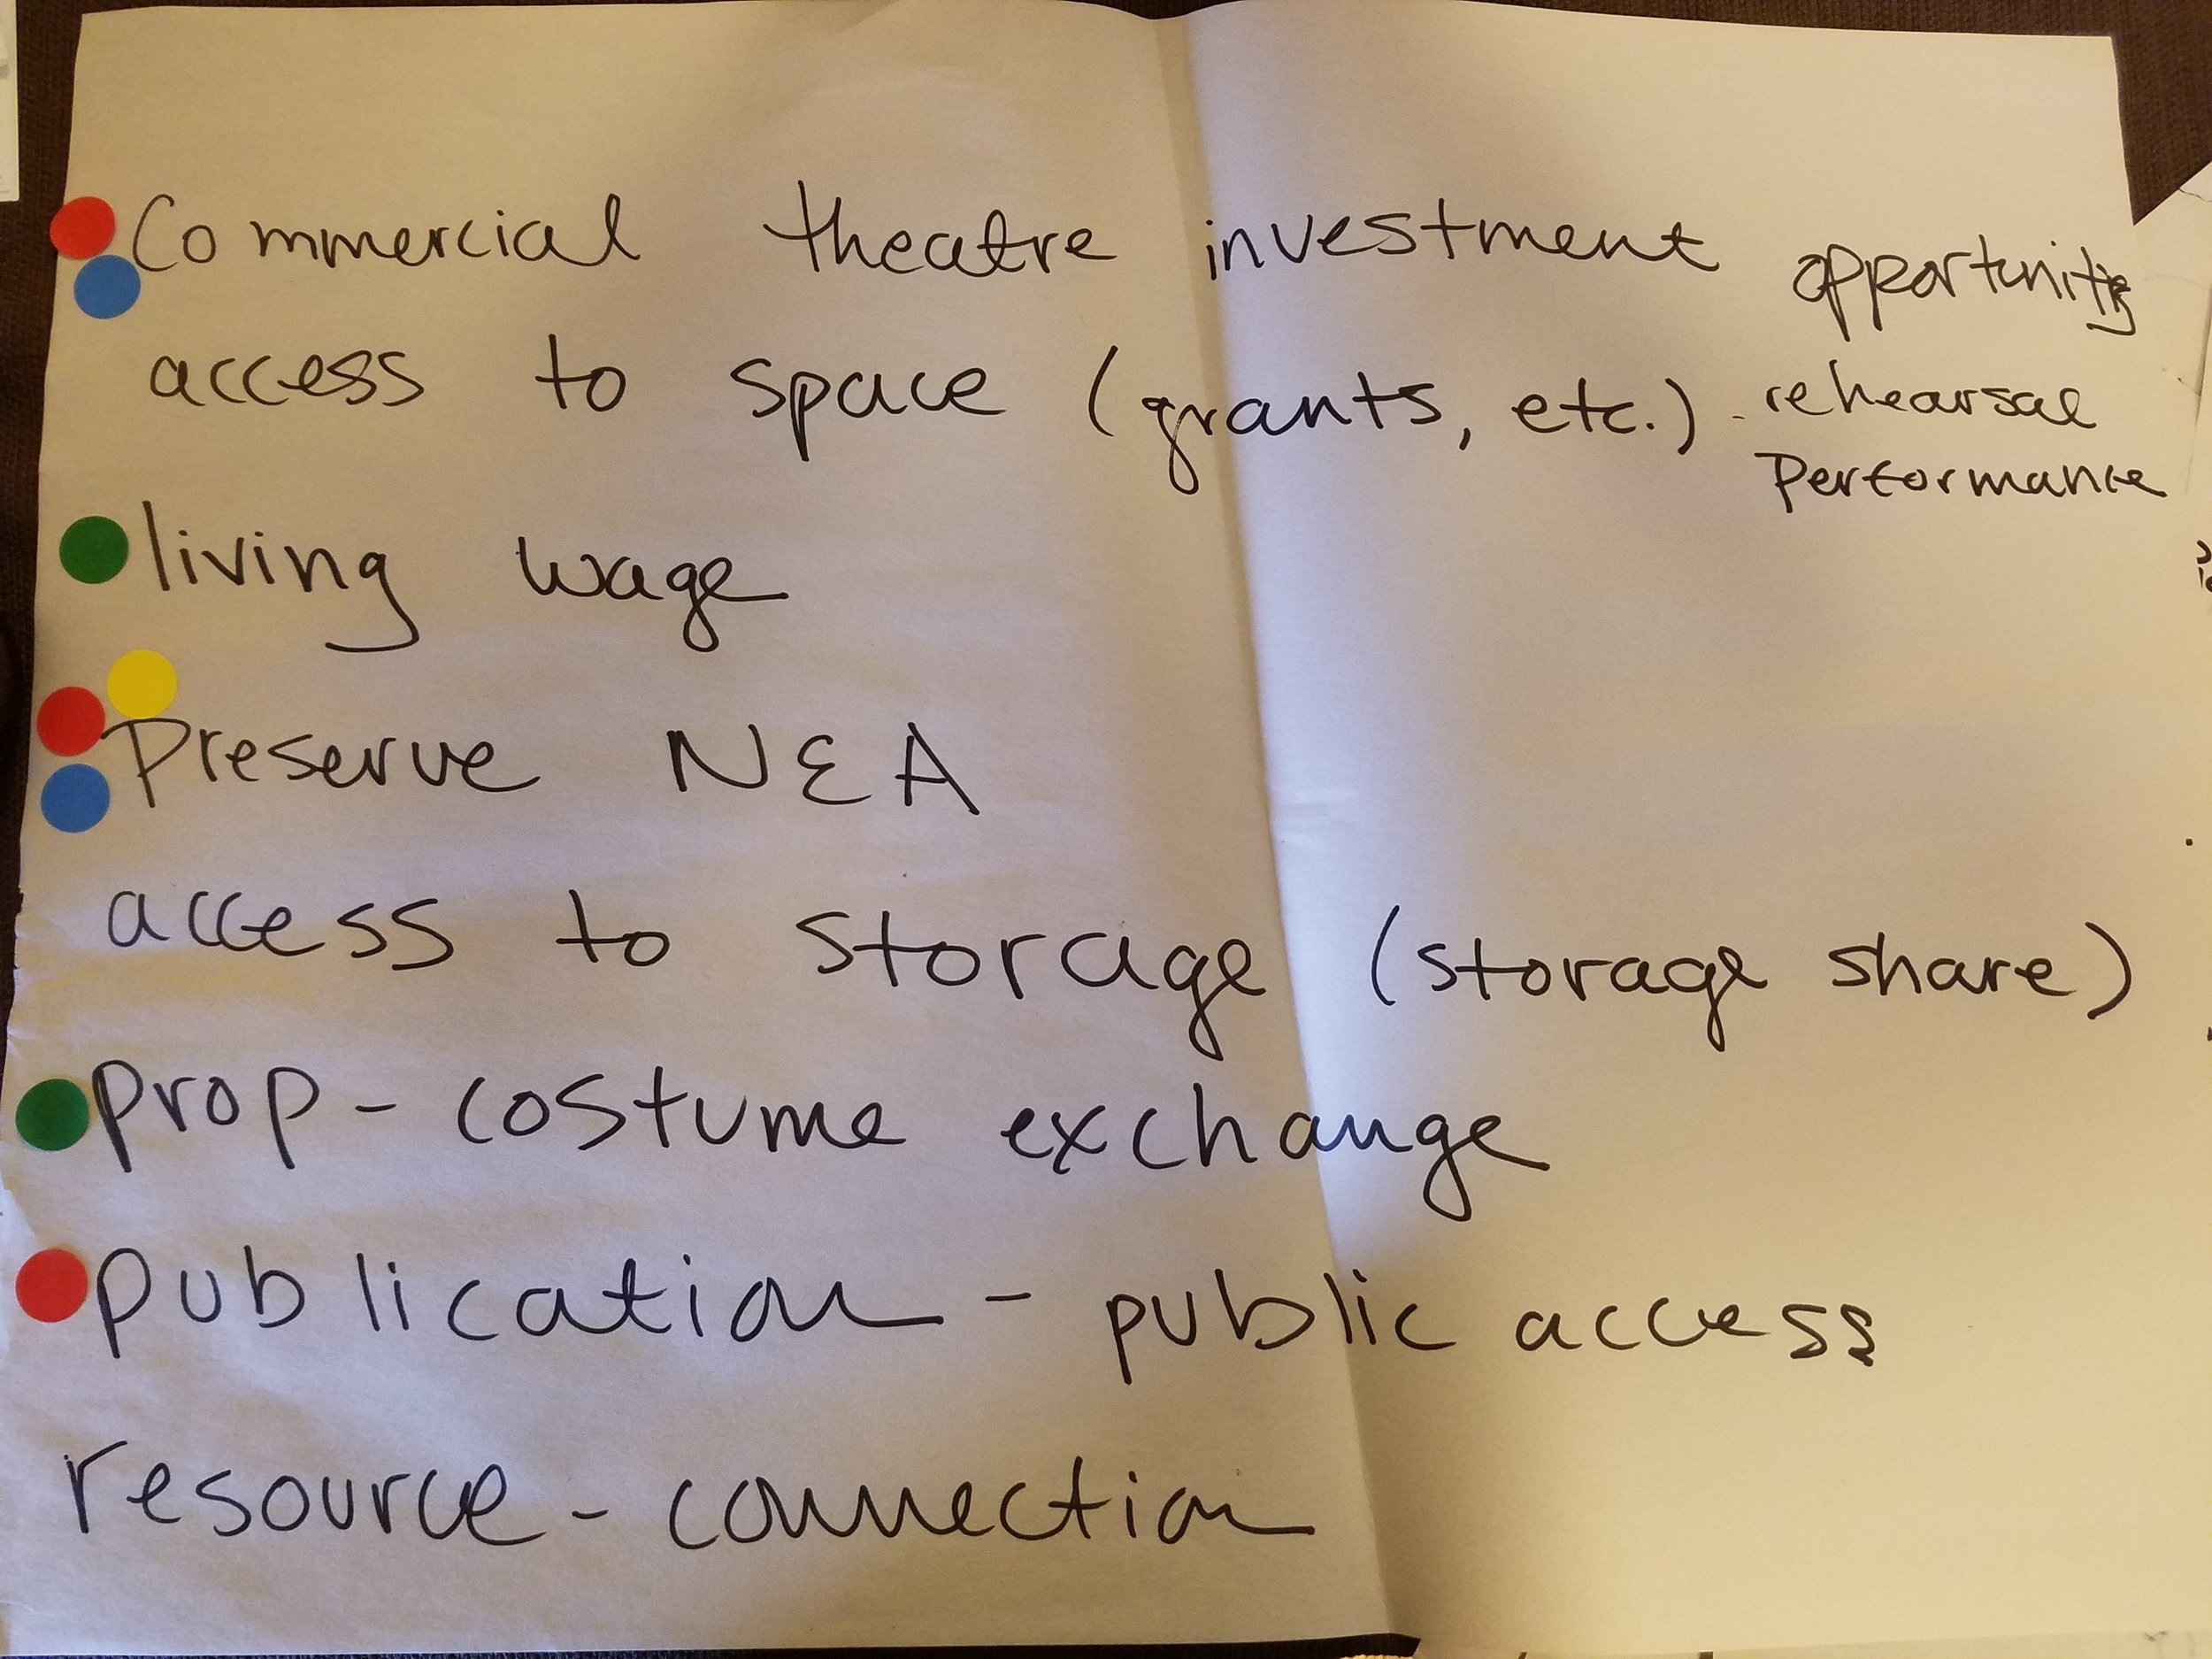 Commercial theatre investment opportunities
access to space (grants, etc.) - rehearsal
Performance
living wage
Preserve NEA
access to storage (storage share)
prop - costume exchange
publication - public access
resource - connection